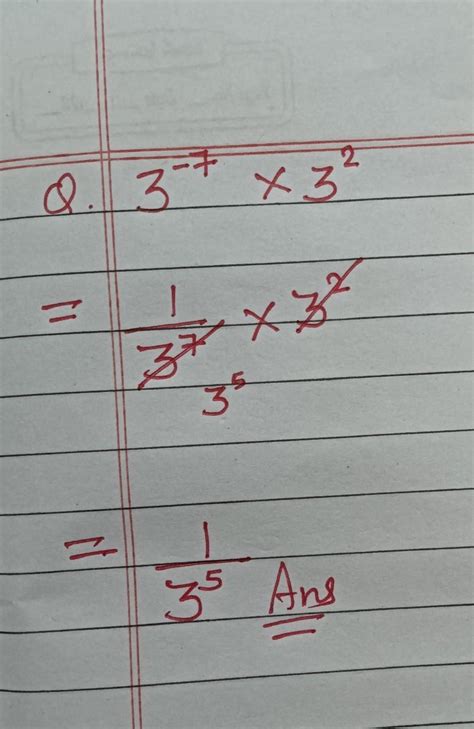 Q. 3⁻⁷ × 3²
= 1/3⁷ × 3²
3⁵
= 1/3⁵ Ans